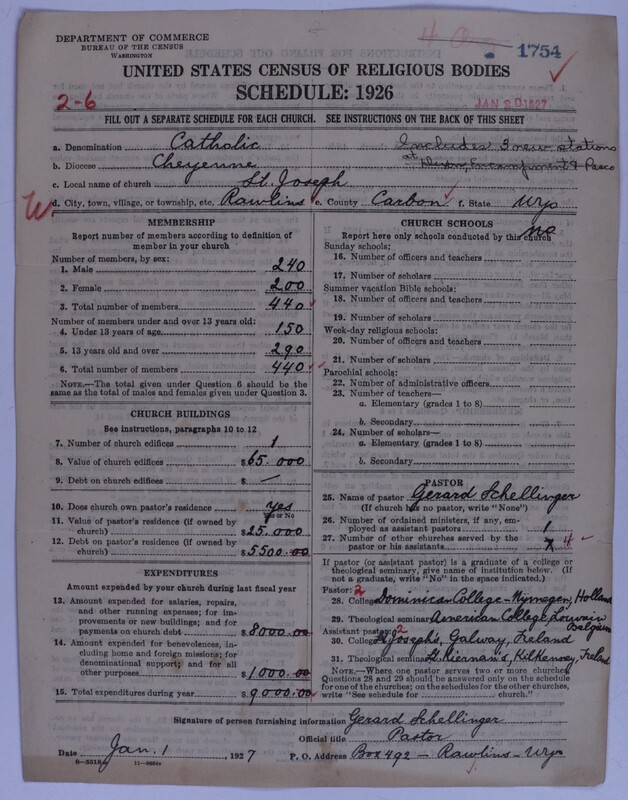 DEPARTMENT OF COMMERCE
BUREAU OF THE CENSUS
WASHINGTON
1754
UNITED STATES CENSUS OF RELIGIOUS BODIES
SCHEDULE: 1926
2-6
JAN 20 1927
FILL OUT A SEPARATE SCHEDULE FOR EACH CHURCH. SEE INSTRUCTIONS ON THE BACK OF THIS SHEET
a. Denomination Catholic
Includes 3 new stations
b. Diocese Cheyenne
at Dixon, Encampment & Parco
c. Local name of church St. Joseph
W d. City, town, village, or township, etc. Rawlins e. County Carbon f. State Wyo
MEMBERSHIP
Report number of members according to definition of member in your church
Number of members, by sex:
1. Male 240
2. Female 200
3. Total number of members 440
Number of members under and over 13 years old:
4. Under 13 years of age 150
5. 13 years old and over 290
6. Total number of members 440
NOTE.—The total given under Question 6 should be the
same as the total of males and females given under Question 3.
CHURCH BUILDINGS
See instructions, paragraphs 10 to 12
7. Number of church edifices 1
8. Value of church edifices $65.000
9. Debt on church edifices $ —
10. Does church own pastor's residence yes
Yes or No
11. Value of pastor's residence (if owned by
church) $25.000
12. Debt on pastor's residence (if owned by
church) $5500.00
EXPENDITURES
Amount expended by your church during last fiscal year
13. Amount expended for salaries, repairs,
and other running expenses; for im-
provements or new buildings; and for
payments on church debt $8000.00
14. Amount expended for benevolences, in-
cluding home and foreign missions; for
denominational support; and for all
other purposes $1000.00
15. Total expenditures during year $9000.00
CHURCH SCHOOLS
Report here only schools conducted by this church
no
Sunday schools:
16. Number of officers and teachers
17. Number of scholars
Summer vacation Bible schools:
18. Number of officers and teachers
19. Number of scholars
Week-day religious schools:
20. Number of officers and teachers
21. Number of scholars
Parochial schools:
22. Number of administrative officers
23. Number of teachers—
a. Elementary (grades 1 to 8)
b. Secondary
24. Number of scholars—
a. Elementary (grades 1 to 8)
b. Secondary
PASTOR
25. Name of pastor Gerard Schellinger
(If church has no pastor, write "None")
26. Number of ordained ministers, if any, em-
ployed as assistant pastors 1
27. Number of other churches served by the
pastor or his assistants 4
If pastor (or assistant pastor) is a graduate of a college or
theological seminary, give name of institution below. (If
not a graduate, write "No" in the space indicated.)
Pastor: 2
28. College Dominican College - Nymegen, Holland
29. Theological seminary American College, Louvain Belgium
Assistant pastor: 2
30. College St Joseph's, Galway, Ireland
31. Theological seminary St. Kiernan's, Kilkenney, Ireland
NOTE.—Where one pastor serves two or more churches
Questions 28 and 29 should be answered only on the schedule
for one of the churches; on the schedules for the other churches,
write "See schedule for church."
Signature of person furnishing information Gerard Schellinger
Official title Pastor
Date Jan. 1 1927 P. O. Address Box 492 — Rawlins - Wyo
8—5518 11—9804a